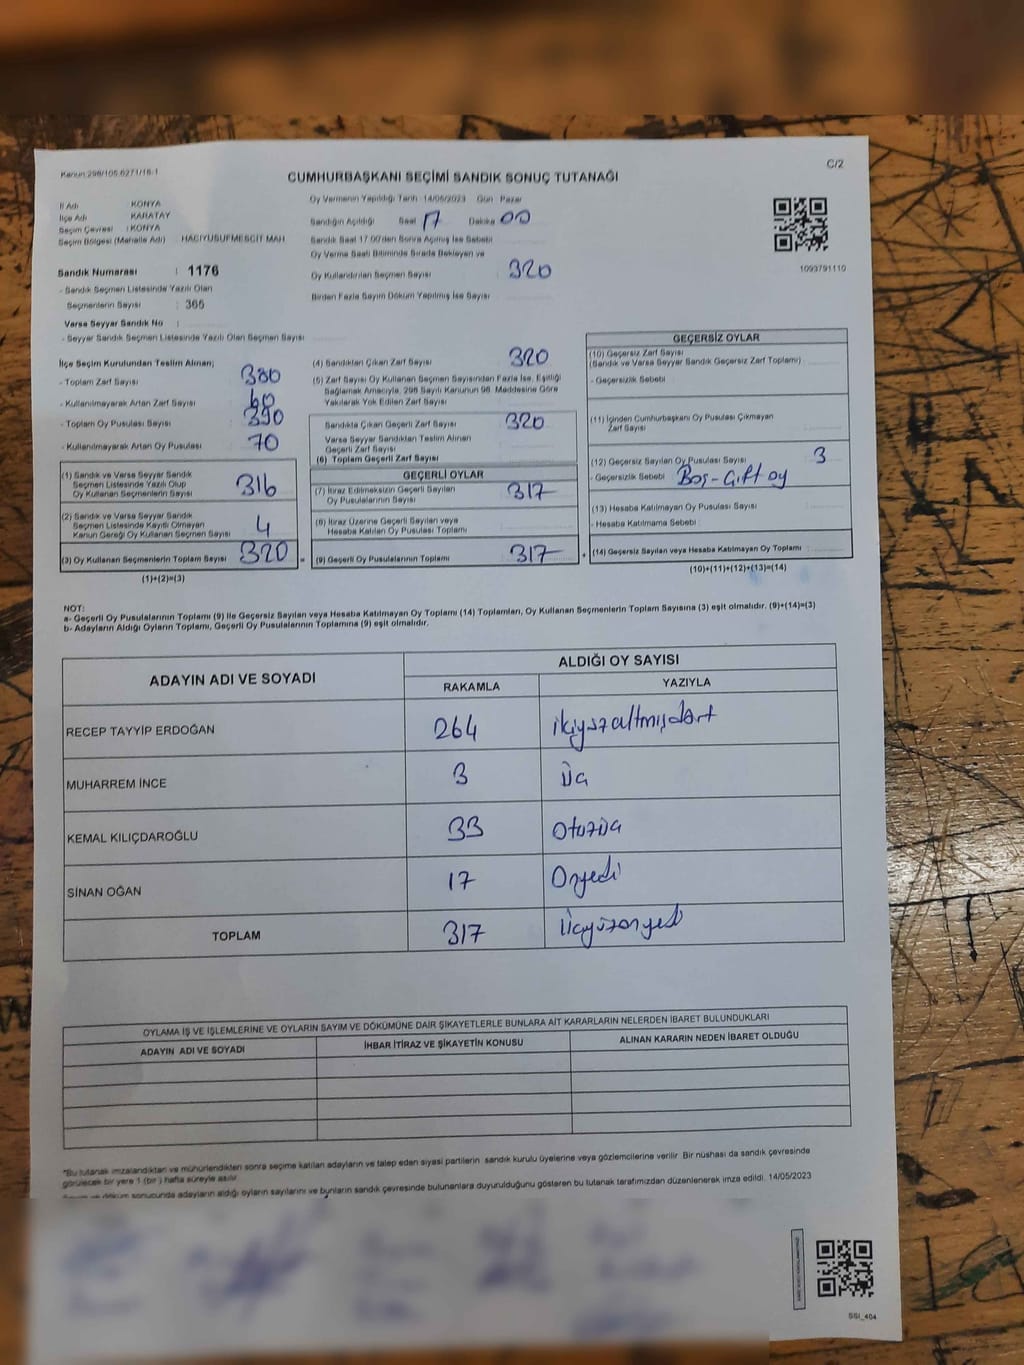 Kanun:298/105,6271/16-1
C/2
CUMHURBAŞKANI SEÇİMİ SANDIK SONUÇ TUTANAĞI
İl Adı : KONYA
İlçe Adı : KARATAY
Seçim Çevresi : KONYA
Seçim Bölgesi (Mahalle Adı) : HACIYUSUFMESCİT MAH
Sandık Numarası : 1176
- Sandık Seçmen Listesinde Yazılı Olan
Seçmenlerin Sayısı : 365
Varsa Seyyar Sandık No :
- Seyyar Sandık Seçmen Listesinde Yazılı Olan Seçmen Sayısı
Oy Vermenin Yapıldığı Tarih 14/05/2023 Gün Pazar
Sandığın Açıldığı Saat 17 Dakika 00
Sandık Saat 17:00'den Sonra Açılmış İse Sebebi
Oy Verme Saati Bitiminde Sırada Bekleyen ve
Oy Kullandırılan Seçmen Sayısı 320
Birden Fazla Sayım Döküm Yapılmış İse Sayısı
1093791110
İlçe Seçim Kurulundan Teslim Alınan;
- Toplam Zarf Sayısı 380
- Kullanılmayarak Artan Zarf Sayısı 60
- Toplam Oy Pusulası Sayısı 390
- Kullanılmayarak Artan Oy Pusulası 70
(1) Sandık ve Varsa Seyyar Sandık
Seçmen Listesinde Yazılı Olup
Oy Kullanan Seçmenlerin Sayısı 316
(2) Sandık ve Varsa Seyyar Sandık
Seçmen Listesinde Kayıtlı Olmayan
Kanun Gereği Oy Kullanan Seçmen Sayısı 4
(3) Oy Kullanan Seçmenlerin Toplam Sayısı 320 =
(1)+(2)=(3)
(4) Sandıktan Çıkan Zarf Sayısı 320
(5) Zarf Sayısı Oy Kullanan Seçmen Sayısından Fazla İse, Eşitliği
Sağlamak Amacıyla, 298 Sayılı Kanunun 98. Maddesine Göre
Yakılarak Yok Edilen Zarf Sayısı
Sandıkta Çıkan Geçerli Zarf Sayısı 320
Varsa Seyyar Sandıktan Teslim Alınan
Geçerli Zarf Sayısı
(6) Toplam Geçerli Zarf Sayısı
GEÇERLİ OYLAR
(7) İtiraz Edilmeksizin Geçerli Sayılan
Oy Pusulalarının Sayısı 317
(8) İtiraz Üzerine Geçerli Sayılan veya
Hesaba Katılan Oy Pusulası Toplamı
(9) Geçerli Oy Pusulalarının Toplamı 317 +
GEÇERSİZ OYLAR
(10) Geçersiz Zarf Sayısı
(Sandık ve Varsa Seyyar Sandık Geçersiz Zarf Toplamı)
- Geçersizlik Sebebi
(11) İçinden Cumhurbaşkanı Oy Pusulası Çıkmayan
Zarf Sayısı
(12) Geçersiz Sayılan Oy Pusulası Sayısı 3
- Geçersizlik Sebebi Boş-Çift oy
(13) Hesaba Katılmayan Oy Pusulası Sayısı
- Hesaba Katılmama Sebebi :
(14) Geçersiz Sayılan veya Hesaba Katılmayan Oy Toplamı
(10)+(11)+(12)+(13)=(14)
NOT:
a- Geçerli Oy Pusulalarının Toplamı (9) ile Geçersiz Sayılan veya Hesaba Katılmayan Oy Toplamı (14) Toplamları, Oy Kullanan Seçmenlerin Toplam Sayısına (3) eşit olmalıdır. (9)+(14)=(3)
b- Adayların Aldığı Oyların Toplamı, Geçerli Oy Pusulalarının Toplamına (9) eşit olmalıdır.
ADAYIN ADI VE SOYADI ALDIĞI OY SAYISI
RAKAMLA YAZIYLA
RECEP TAYYİP ERDOĞAN 264 ikiyüzaltmışdört
MUHARREM İNCE 3 Üç
KEMAL KILIÇDAROĞLU 33 Otuzüç
SİNAN OĞAN 17 Onyedi
TOPLAM 317 Üçyüzonyedi
OYLAMA İŞ VE İŞLEMLERİNE VE OYLARIN SAYIM VE DÖKÜMÜNE DAİR ŞİKAYETLERLE BUNLARA AİT KARARLARIN NELERDEN İBARET BULUNDUKLARI
ADAYIN ADI VE SOYADI İHBAR İTİRAZ VE ŞİKAYETİN KONUSU ALINAN KARARIN NEDEN İBARET OLDUĞU
*Bu tutanak imzalandıktan ve mühürlendikten sonra seçime katılan adayların ve talep eden siyasi partilerin sandık kurulu üyelerine veya gözlemcilerine verilir. Bir nüshası da sandık çevresinde
görülecek bir yere 1 (bir) hafta süreyle asılır.
Sayım ve döküm sonucunda adayların aldığı oyların sayılarını ve bunların sandık çevresinde bulunanlara duyurulduğunu gösteren bu tutanak tarafımızdan düzenlenerek imza edildi. 14/05/2023
SSI_404